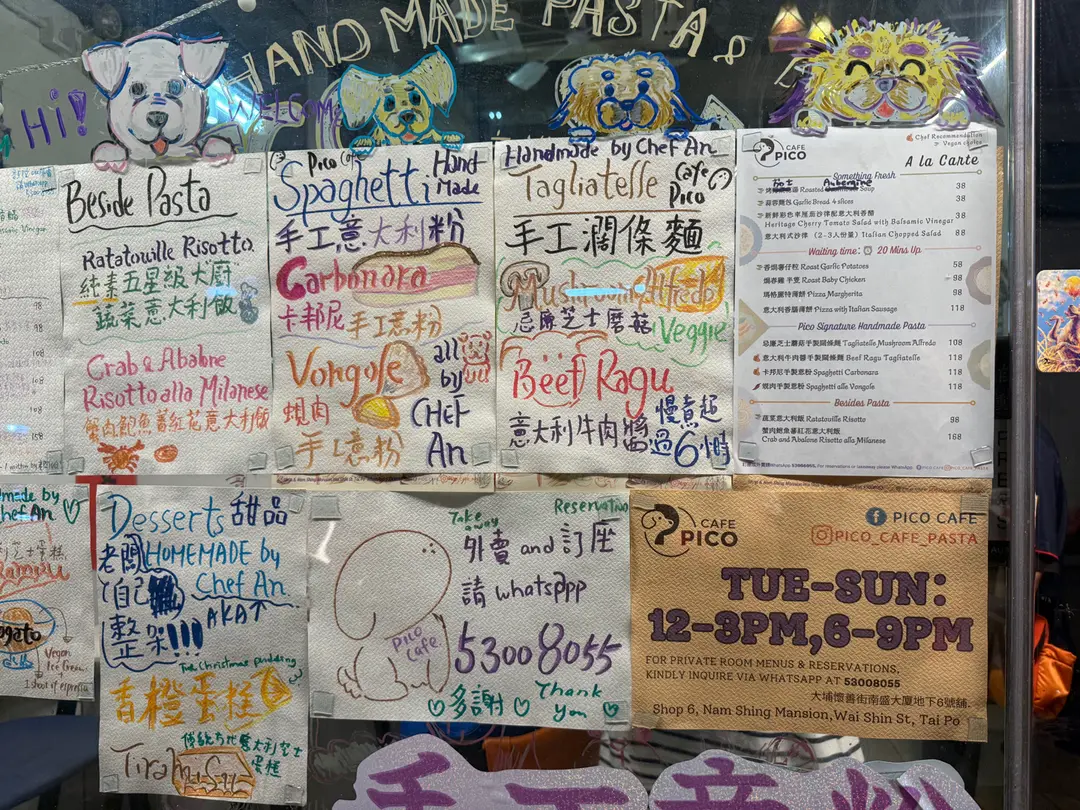 HAND MADE PASTA
Hi!
WELCOME
Beside Pasta
Ratatouille Risotto
純素五星級大廚
蔬菜意大利飯
Crab & Abalone
Risotto alla Milanese
蟹肉鮑魚蕃紅花意大利飯
Pico Cafe
Spaghetti Hand Made
手工意大利粉
Carbonara
卡邦尼手工意粉
Vongole
蜆肉
手工意粉
all
by
CHEF
An
Handmade by Chef An
Tagliatelle Cafe Pico
手工濶條麵
Mushroom Alfredo
忌廉芝士磨菇 Veggie
Beef Ragu
意大利牛肉醬
慢煮超
過6小時
CAFE
PICO
Chef Recommendation
Vegan choice
A la Carte
Something Fresh
38
蒜蓉麵包 Garlic Bread 4 slices 38
新鮮彩色車厘茄沙律配意大利香醋
Heritage Cherry Tomato Salad with Balsamic Vinegar 98
意大利式沙律 (2-3人份量) Italian Chopped Salad 88
Waiting time: 20 Mins Up
香焗薯仔粒 Roast Garlic Potatoes 58
焗春雞 半隻 Roast Baby Chicken 98
瑪格麗特薄餅 Pizza Margherita 98
意大利香腸薄餅 Pizza with Italian Sausage 118
Pico Signature Handmade Pasta
忌廉芝士蘑菇手製闊條麵 Tagliatelle Mushroom Alfredo 108
意大利牛肉醬手製闊條麵 Beef Ragu Tagliatelle 118
卡邦尼手製意粉 Spaghetti Carbonara 118
蜆肉手製意粉 Spaghetti alle Vongole 118
Besides Pasta
蔬菜意大利飯 Ratatouille Risotto 98
蟹肉鮑魚蕃紅花意大利飯
Crab and Abalone Risotto alla Milanese 168
made by
Chef An
Vegan
Ice Cream
1 shoot of espresso
Desserts 甜品
老闆 HOMEMADE by
自己 Chef An
整架!!! AKA↑
The Christmas pudding
香橙蛋糕
傳統方地意大利芝士
蛋糕
Tiramisu
Take away
Reservation
外賣 and 訂座
請 whatsapp
5300 8055
多謝 Thank you
PICO
Cafe
CAFE
PICO
PICO CAFE
PICO_CAFE_PASTA
TUE-SUN:
12-3PM,6-9PM
FOR PRIVATE ROOM MENUS & RESERVATIONS,
KINDLY INQUIRE VIA WHATSAPP AT 53008055
大埔懷善街南盛大廈地下6號舖.
Shop 6, Nam Shing Mansion,Wai Shin St, Tai Po
手工意粉